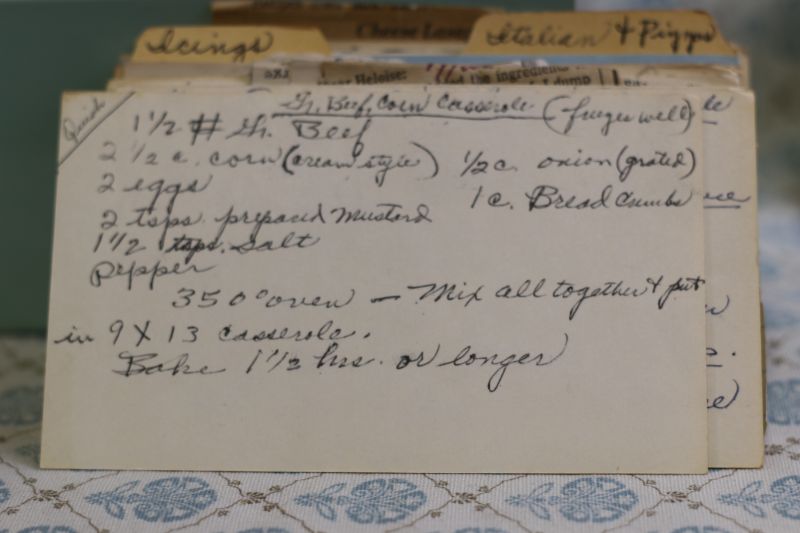 Icings
Italian & Pizza
Heloise:
the ingredients
I dump
Quick
Gr. Beef, Corn Casserole (freezes well)
1 1/2 # Gr. Beef
2 1/2 c. corn (cream style) 1/2 c. onion (grated)
2 eggs 1 c. Bread Crumbs
2 tsps. prepared Mustard
1 1/2 tsps. Salt
Pepper
350° oven – Mix all together & put
in 9 X 13 casserole.
Bake 1 1/2 hrs. or longer